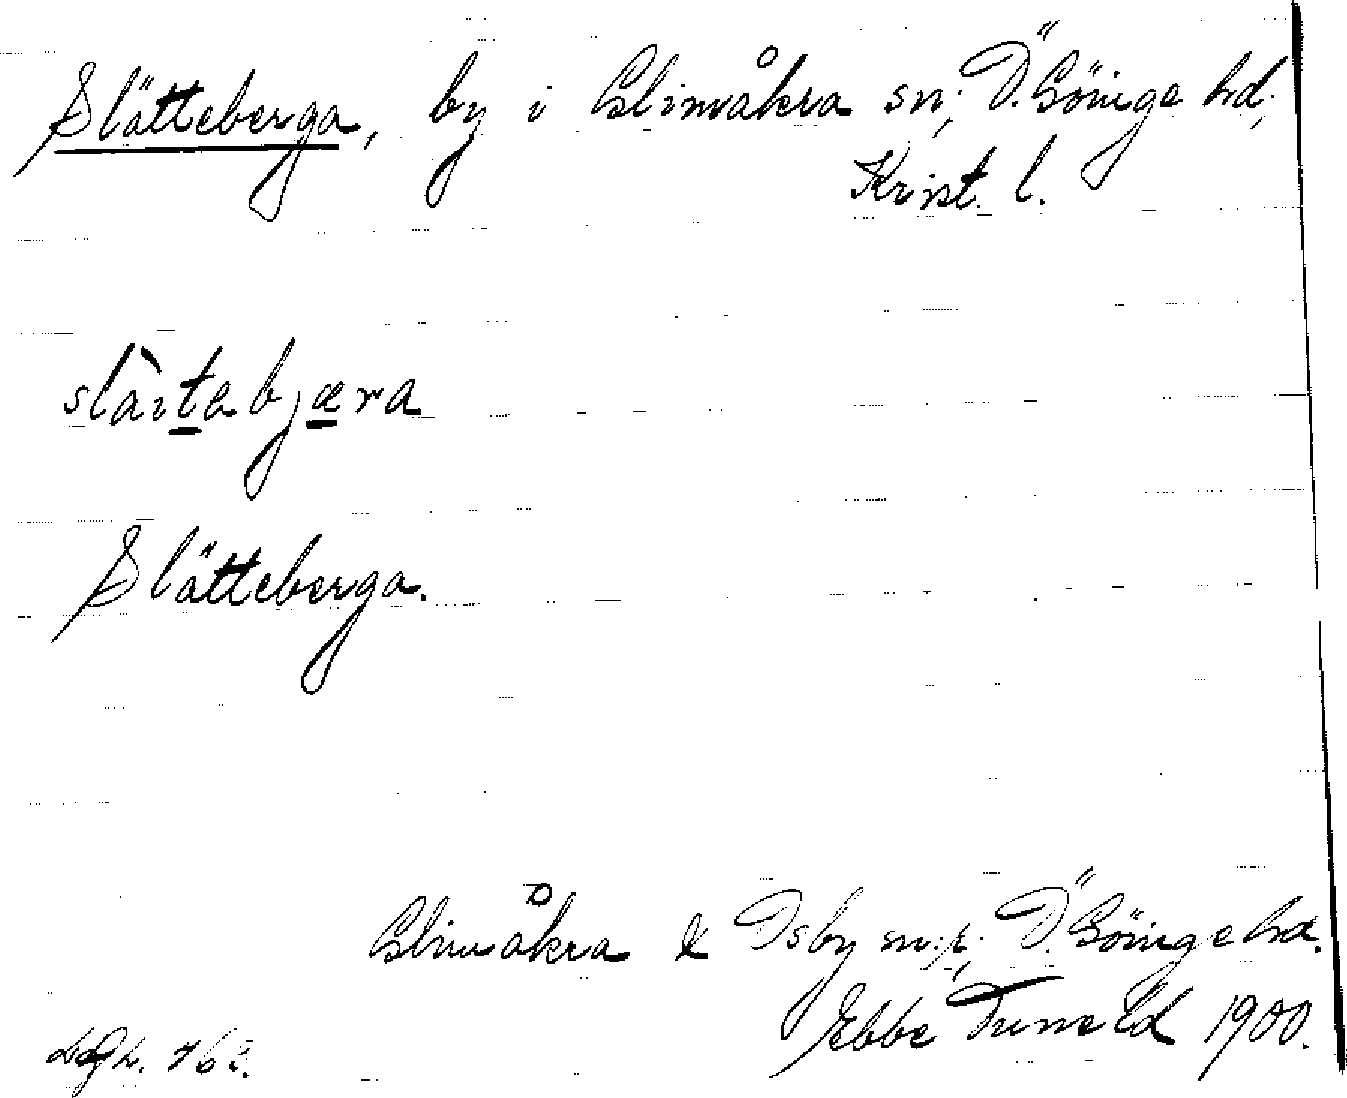 Slätteberga, by i Glimåkra sn, Ö. Göinge hd,
Krist. l.
slättabjæra
Slätteberga.
Glimåkra & Osby sn:r, Ö. Göinge hd.
Ebbe Tuneld 1900.